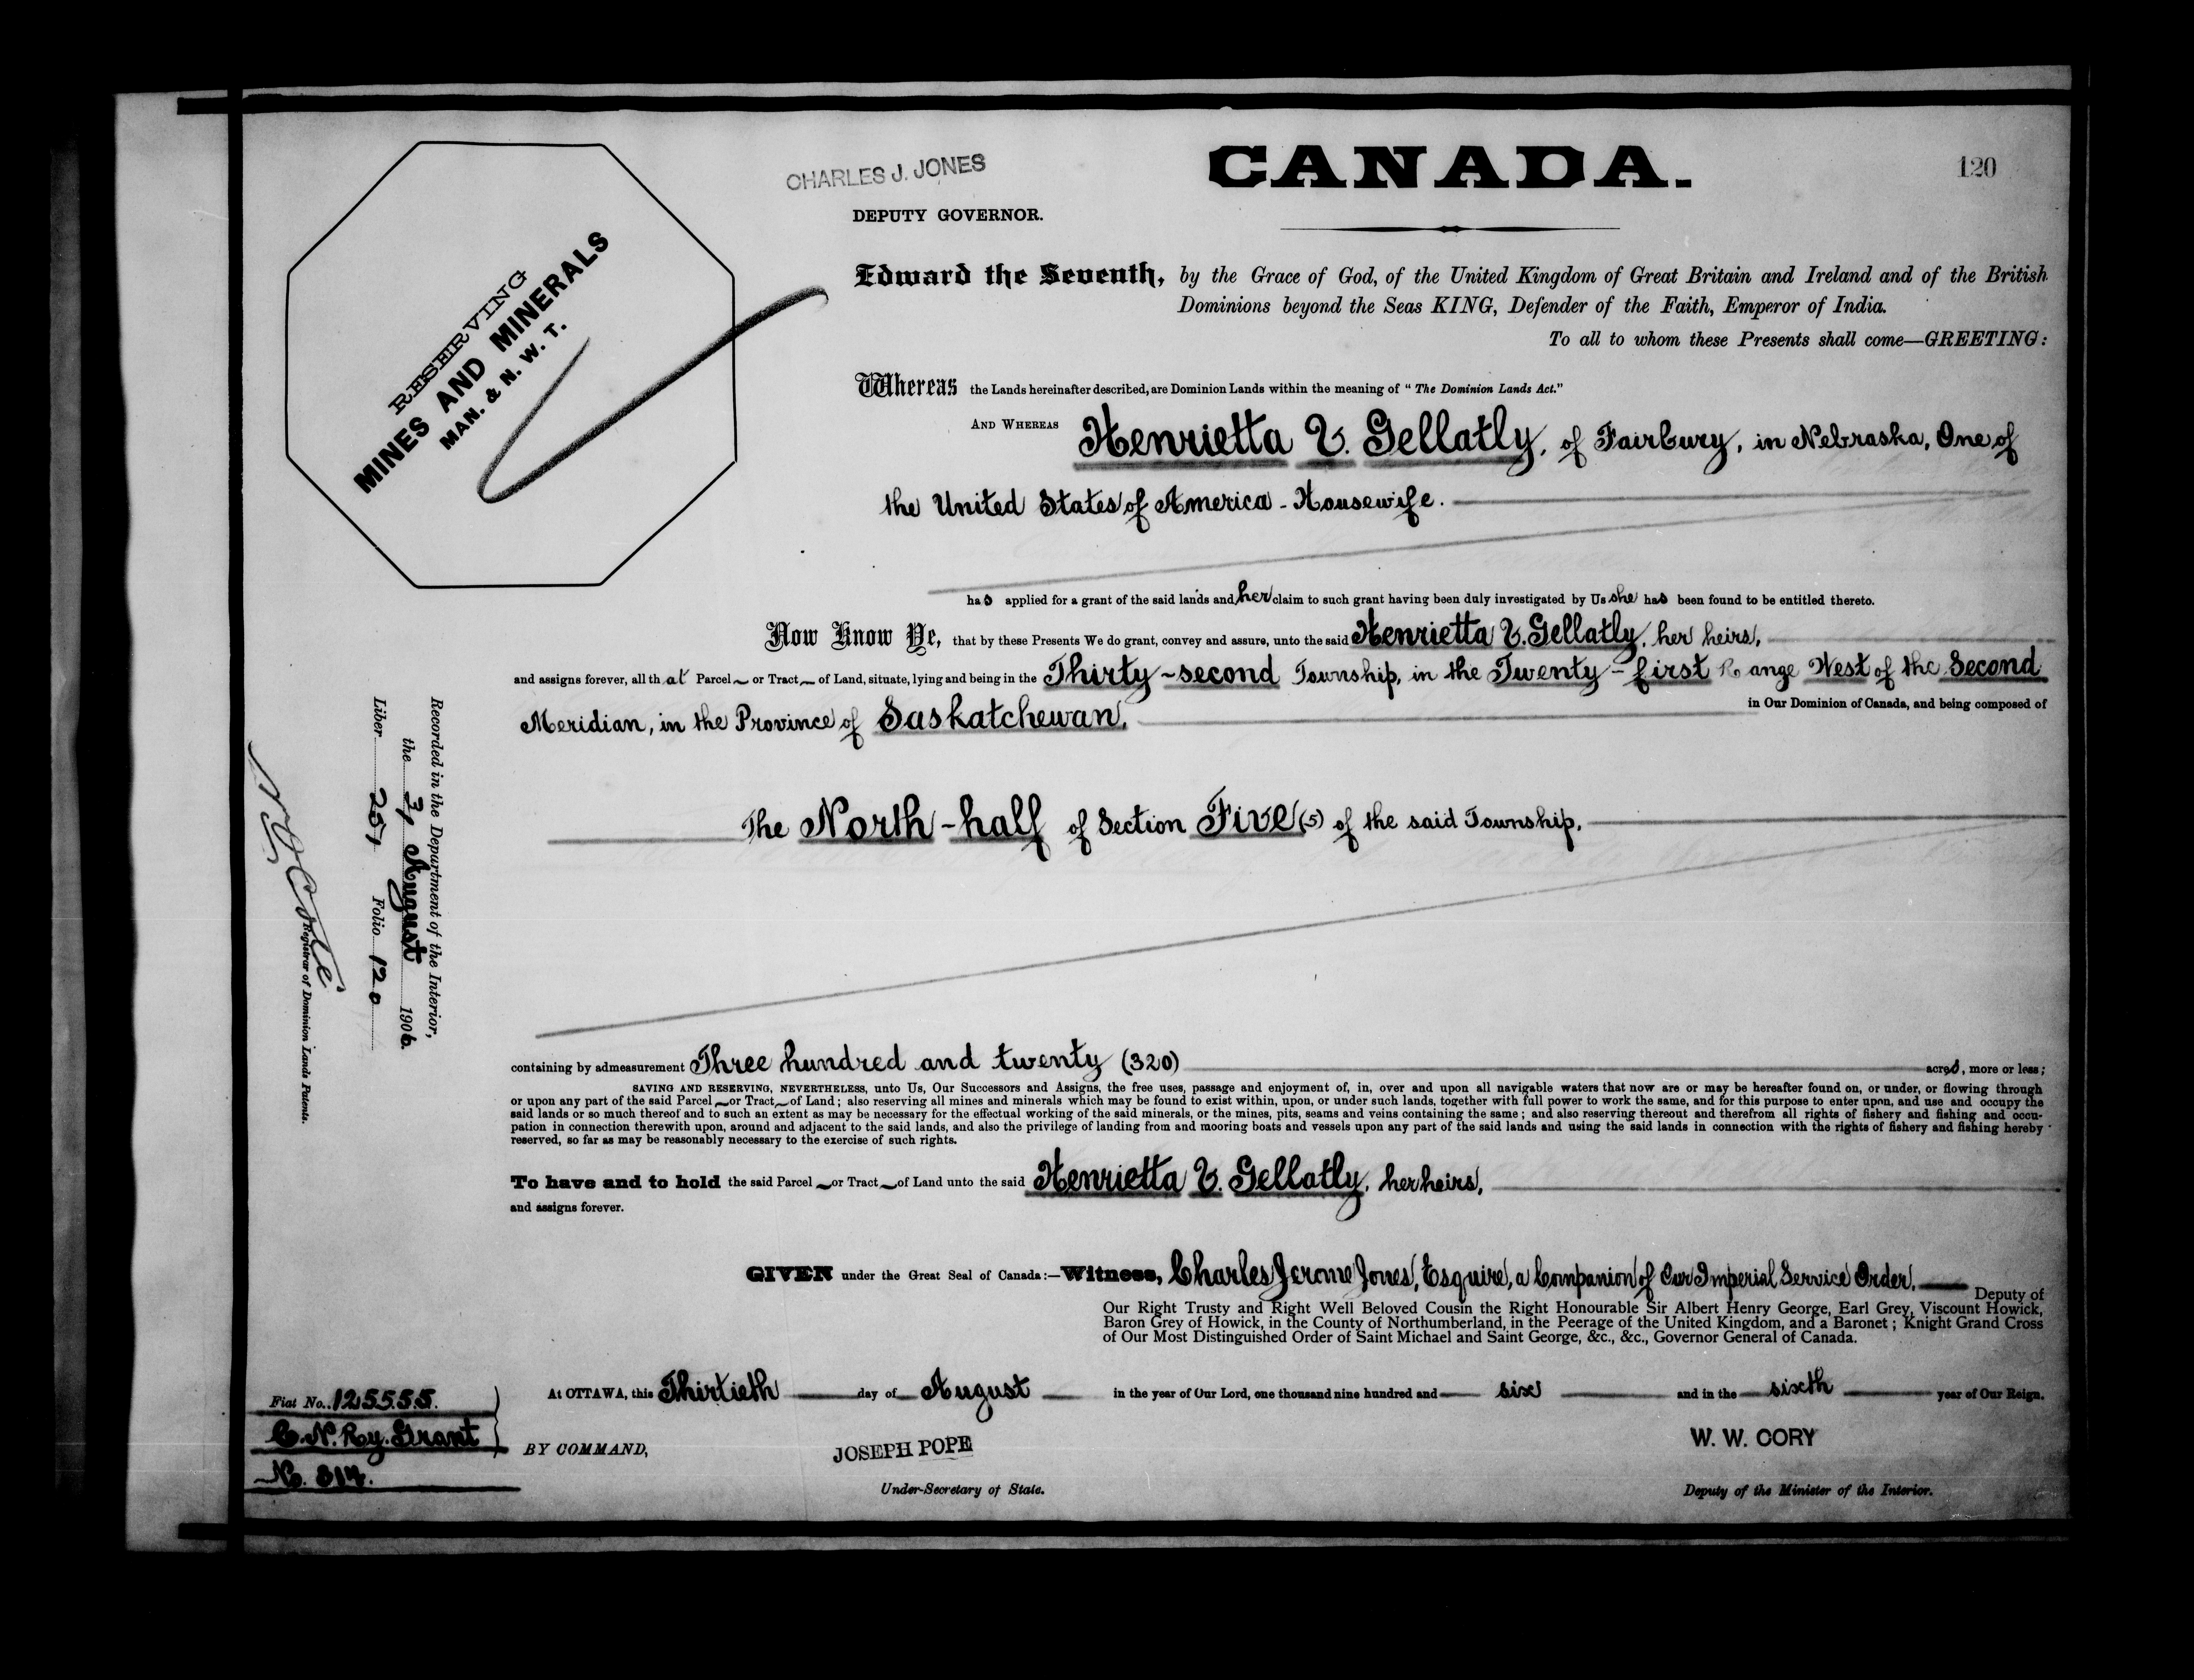 CHARLES J. JONES
DEPUTY GOVERNOR.
CANADA.
120
RESERVING
MINES AND MINERALS
MAN. & N. W. T.
Edward the Seventh, by the Grace of God, of the United Kingdom of Great Britain and Ireland and of the British
Dominions beyond the Seas KING, Defender of the Faith, Emperor of India.
To all to whom these Presents shall come—GREETING:
Whereas the Lands hereinafter described, are Dominion Lands within the meaning of "The Dominion Lands Act."
AND WHEREAS Henrietta V. Gellatly, of Fairbury, in Nebraska, One of
the United States of America - Housewife.
has applied for a grant of the said lands and her claim to such grant having been duly investigated by Us she has been found to be entitled thereto.
Now Know Ye, that by these Presents We do grant, convey and assure, unto the said Henrietta V. Gellatly, her heirs,
and assigns forever, all that Parcel or Tract of Land, situate, lying and being in the Thirty-second Township, in the Twenty-first Range West of the Second
Meridian, in the Province of Saskatchewan, in Our Dominion of Canada, and being composed of
The North-half of Section Five (5) of the said Township,
containing by admeasurement Three hundred and twenty (320) acres, more or less;
SAVING AND RESERVING, NEVERTHELESS, unto Us, Our Successors and Assigns, the free uses, passage and enjoyment of, in, over and upon all navigable waters that now are or may be hereafter found on, or under, or flowing through
or upon any part of the said Parcel or Tract of Land; also reserving all mines and minerals which may be found to exist within, upon, or under such lands, together with full power to work the same, and for this purpose to enter upon, and use and occupy the
said lands or so much thereof and to such an extent as may be necessary for the effectual working of the said minerals, or the mines, pits, seams and veins containing the same; and also reserving thereout and therefrom all rights of fishery and fishing and occu-
pation in connection therewith upon, around and adjacent to the said lands, and also the privilege of landing from and mooring boats and vessels upon any part of the said lands and using the said lands in connection with the rights of fishery and fishing hereby
reserved, so far as may be reasonably necessary to the exercise of such rights.
To have and to hold the said Parcel or Tract of Land unto the said Henrietta V. Gellatly, her heirs,
and assigns forever.
GIVEN under the Great Seal of Canada:—Witness, Charles Jerome Jones, Esquire, a Companion of Our Imperial Service Order, Deputy of
Our Right Trusty and Right Well Beloved Cousin the Right Honourable Sir Albert Henry George, Earl Grey, Viscount Howick,
Baron Grey of Howick, in the County of Northumberland, in the Peerage of the United Kingdom, and a Baronet; Knight Grand Cross
of Our Most Distinguished Order of Saint Michael and Saint George, &c., &c., Governor General of Canada.
At OTTAWA, this Thirtieth day of August in the year of Our Lord, one thousand nine hundred and six and in the sixth year of Our Reign.
BY COMMAND,
JOSEPH POPE
Under-Secretary of State.
W. W. CORY
Deputy of the Minister of the Interior.
Recorded in the Department of the Interior,
the 31 August 1906.
Liber 251 Folio 120
N O Coté
Registrar of Dominion Lands Patents.
Fiat No. 125555.
C. N. Ry. Grant
No. 314.